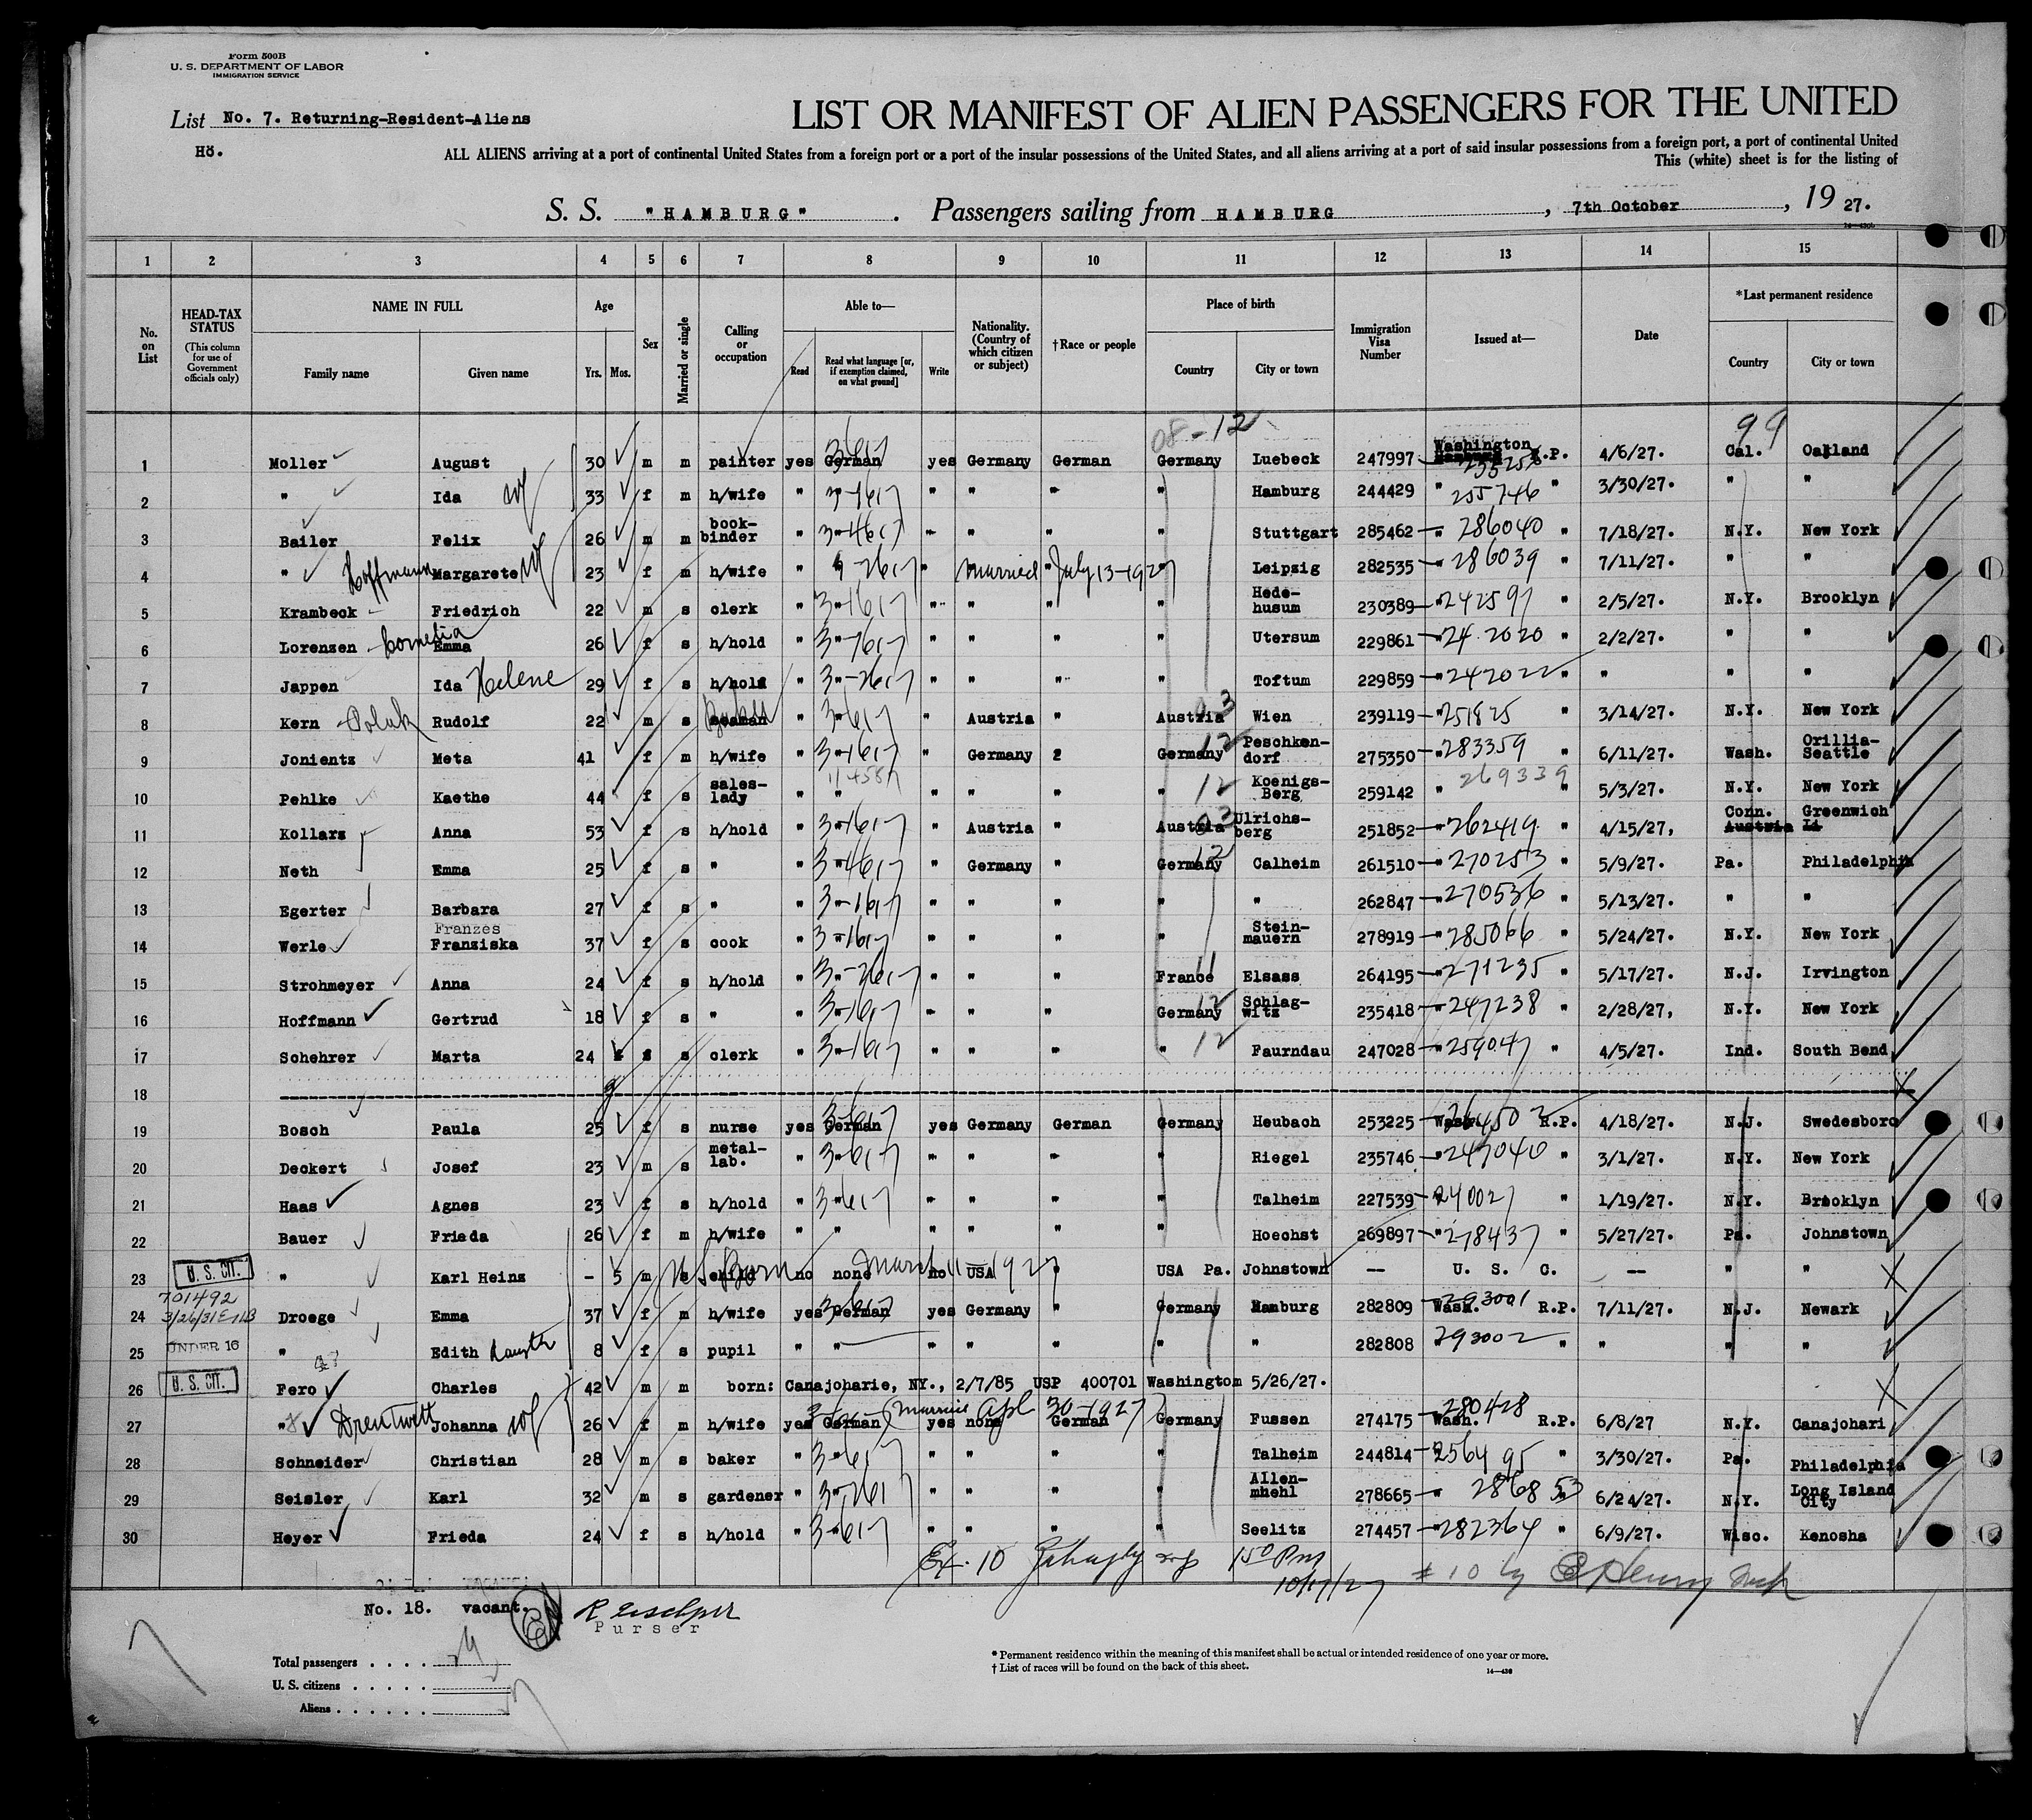 Form 500B
U. S. DEPARTMENT OF LABOR
IMMIGRATION SERVICE
List No. 7. Returning-Resident-Aliens
Hö.
LIST OR MANIFEST OF ALIEN PASSENGERS FOR THE UNITED
ALL ALIENS arriving at a port of continental United States from a foreign port or a port of the insular possessions of the United States, and all aliens arriving at a port of said insular possessions from a foreign port, a port of continental United
This (white) sheet is for the listing of
S. S. "HAMBURG". Passengers sailing from HAMBURG, 7th October, 1927.
1 2 3 4 5 6 7 8 9 10 11 12 13 14 15
No. on List
HEAD-TAX STATUS (This column for use of Government officials only)
NAME IN FULL Family name Given name
Age Yrs. Mos.
Sex
Married or single
Calling or occupation
Able to— Read Read what language [or, if exemption claimed, on what ground] Write
Nationality. (Country of which citizen or subject)
†Race or people
Place of birth Country City or town
Immigration Visa Number
Issued at—
Date
*Last permanent residence Country City or town
08-12 99
1 Moller August 30 m m painter yes German yes Germany German Germany Luebeck 247997 Washington R.P. 4/6/27. Cal. Oakland
2 " Ida wf 33 f m h/wife " " " " " " Hamburg 244429 " 255746 " 3/30/27. " "
3 Bailer Felix 26 m m book-binder " " " " " " Stuttgart 285462 " 286040 " 7/18/27. N.Y. New York
4 " Hoffmann Margarete wf 23 f m h/wife " " " married July 13-1927 " Leipzig 282535 " 286039 " 7/11/27. " "
5 Krambeck Friedrich 22 m s clerk " " " " " " Hede-husum 230389 " 242597 " 2/5/27. N.Y. Brooklyn
6 Lorenzen Cornelia Emma 26 f s h/hold " " " " " " Utersum 229861 " 242020 " 2/2/27. " "
7 Jappen Ida Helene 29 f s h/hold " " " " " " Toftum 229859 " 242022 " " " "
8 Kern Rudolf 22 m s seaman " " " Austria " Austria 03 Wien 239119 " 251825 " 3/14/27. N.Y. New York
9 Jonientz Meta 41 f m h/wife " " " Germany 2 Germany 12 Peschken-dorf 275350 " 283359 " 6/11/27. Wash. Orillia-Seattle
10 Pehlke Kaethe 44 f s sales-lady " " " " " " 12 Koenigs-Berg 259142 " 269339 " 5/3/27. N.Y. New York
11 Kollarz Anna 53 f s h/hold " " " Austria " Austria 03 Ulrichs-berg 251852 " 262419 " 4/15/27, Conn. Austria Greenwich
12 Neth Emma 25 f s " " " " Germany " Germany 12 Calheim 261510 " 270253 " 5/9/27. Pa. Philadelphia
13 Egerter Barbara 27 f s " " " " " " " " 262847 " 270536 " 5/13/27. " "
14 Werle Franzes Franziska 37 f s cook " " " " " " Stein-mauern 278919 " 285066 " 5/24/27. N.Y. New York
15 Strohmeyer Anna 24 f s h/hold " " " " " France 11 Elsass 264195 " 271235 " 5/17/27. N.J. Irvington
16 Hoffmann Gertrud 18 f s " " " " " " Germany 12 Schlag-witz 235418 " 247238 " 2/28/27, N.Y. New York
17 Schehrer Marta 24 s clerk " " " " " " 12 Faurndau 247028 " 259047 " 4/5/27. Ind. South Bend
18
19 Bosch Paula 25 f s nurse yes German yes Germany German Germany Heubach 253225 Wash. 264502 R.P. 4/18/27. N.J. Swedesboro
20 Deckert Josef 23 m s metal-lab. " " " " " " Riegel 235746 " 247040 " 3/1/27. N.Y. New York
21 Haas Agnes 23 f s h/hold " " " " " " Talheim 227539 240027 " 1/19/27. N.Y. Brooklyn
22 Bauer Frieda 26 f m h/wife " " " " " " Hoechst 269897 " 278437 " 5/27/27. Pa. Johnstown
23 U. S. CIT. " Karl Heinz - 5 m s child no none no USA " USA Pa. Johnstown -- U. S. C. -- " "
US Born March 11-1927
701492
3/26/31
24 Droege Emma 37 f m h/wife yes German yes Germany " Germany Hamburg 282809 Wash. 293001 R.P. 7/11/27. N.J. Newark
25 UNDER 16 " Edith 8 f s pupil " " " " " " " 282808 293002 " " " "
26 U. S. CIT. Fero Charles 42 m m born: Canajoharie, NY., 2/7/85 USP 400701 Washington 5/26/27.
27 " Drentwett Johanna wf 26 f m h/wife yes German yes none German Germany Fussen 274175 Wash. 280428 R.P. 6/8/27 N.Y. Canajohari
married Apl 30-1927
28 Schneider Christian 28 m s baker " " " " " " Talheim 244814 256495 " 3/30/27. Pa. Philadelphia
29 Seisler Karl 32 m s gardener " " " " " " Allen-mhehl 278665 " 286853 " 6/24/27. N.Y. Long Island City
30 Heyer Frieda 24 f s h/hold " " " " " " Seelitz 274457 " 282364 " 6/9/27. Wisc. Kenosha
150 PM
10/17/27
No. 18. vacant.
Purser
Total passengers . . . .
U. S. citizens . . . . .
Aliens . . . . . .
* Permanent residence within the meaning of this manifest shall be actual or intended residence of one year or more.
† List of races will be found on the back of this sheet.
14—430